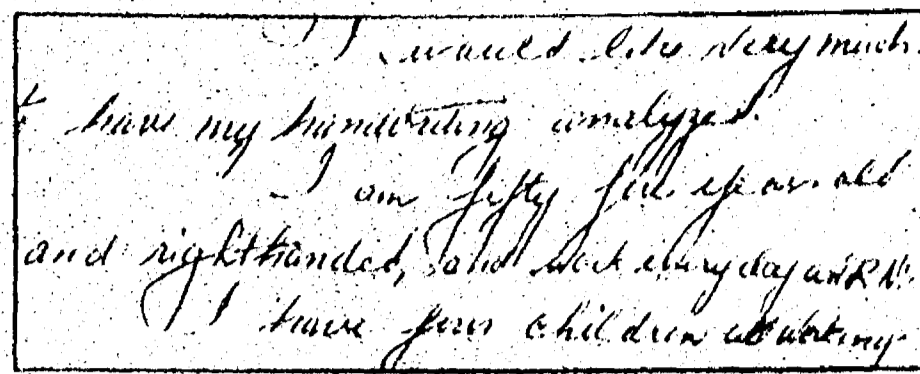 I would like very much
t have my handwriting analyzed.
I am fifty five years old
and righthanded, and work everyday as RN.
I have four children all working